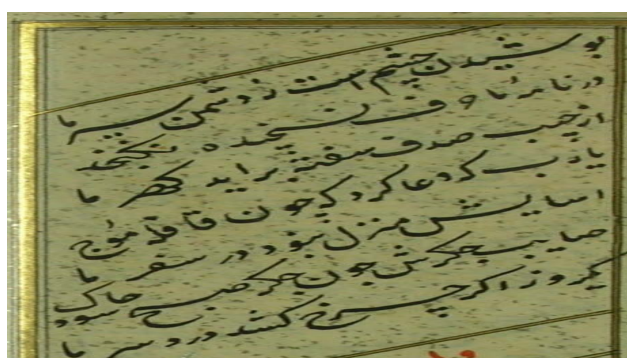 پوشیدن چشم است ز دشمن سپر ما
در نامهٔ ما حرف نسنجیده نگنجد
از جیب صدف سفته براید گهر ما
یارب که دعا کرد که چون قافلۀ موج
اسایش منزل نبود در سفر ما
صایب جگرش چون جگر صبح شود چاک
یکروز اگر چرخ کشد درد سر ما